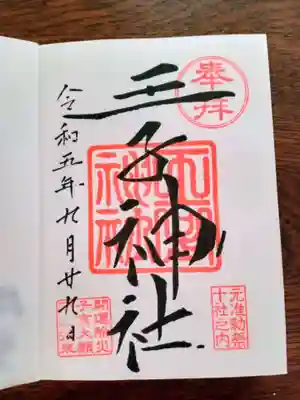 奉拝
王子神社
元准勅祭
十社之内
令和五年九月廿九日
開運除災
子育大願